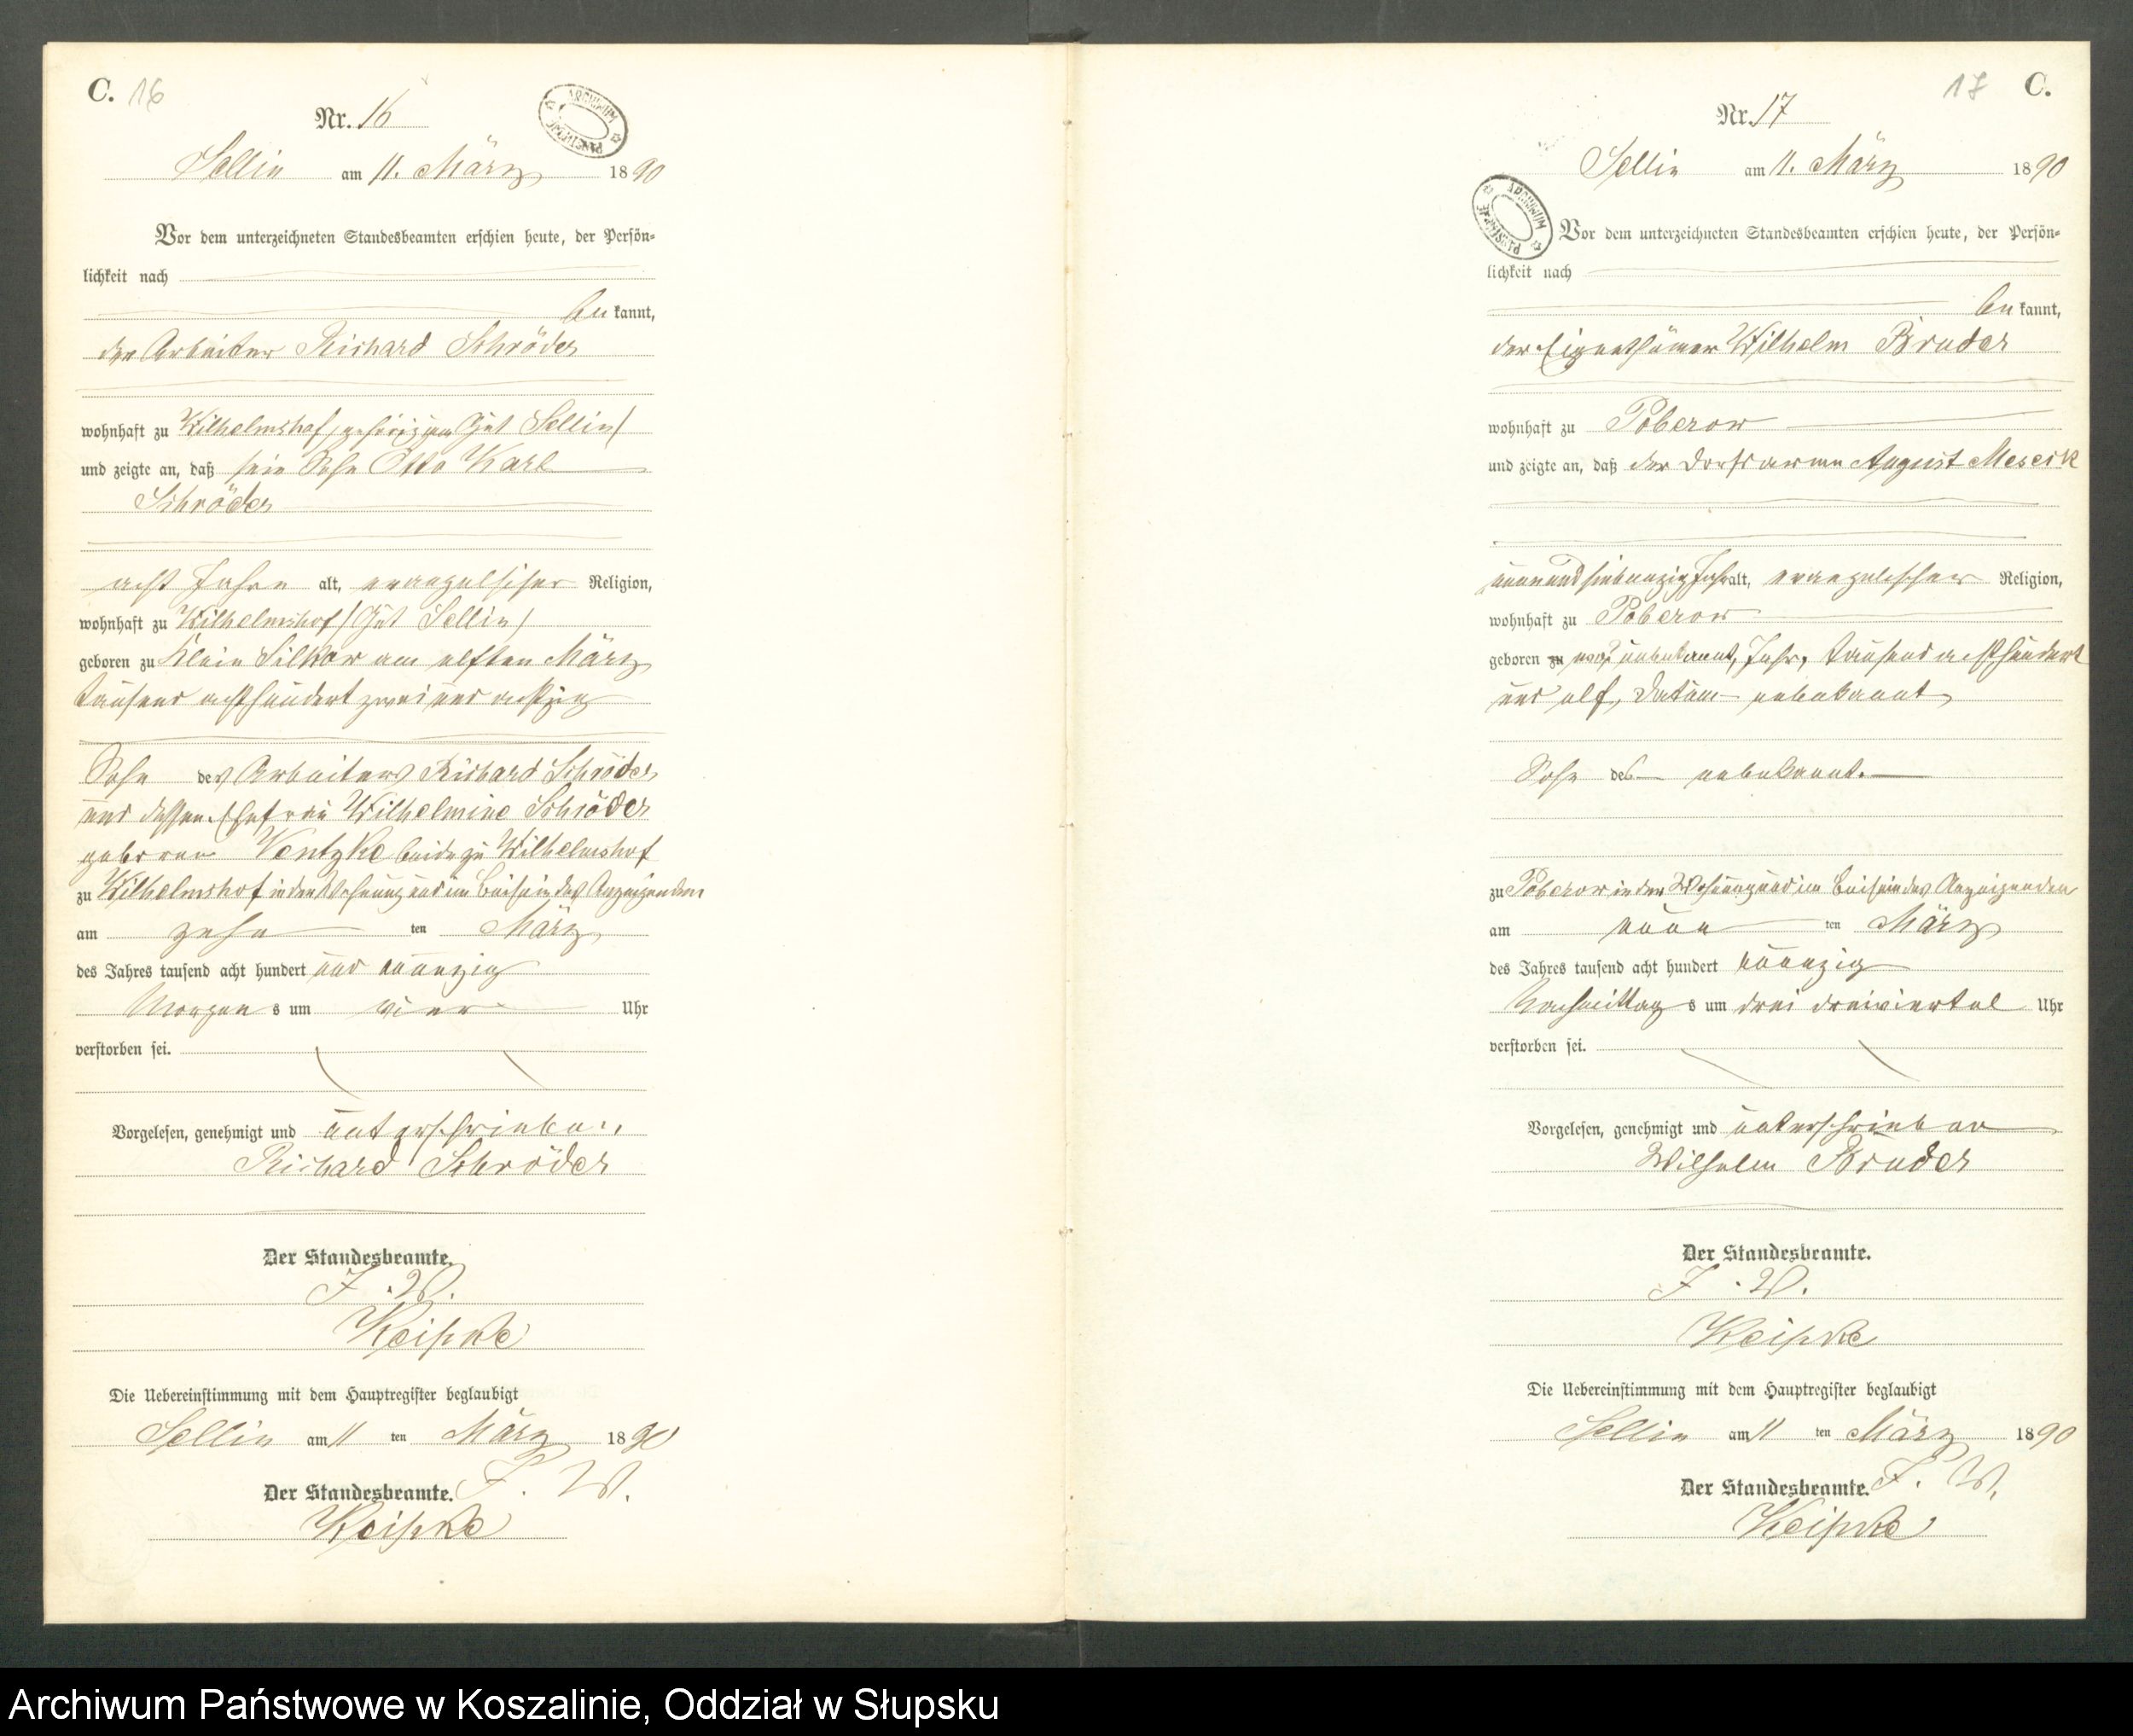 C. 16
Nr. 16
ARCHIWUM PAŃSTWOWE
Sellin am 11. März 1890
Vor dem unterzeichneten Standesbeamten erschien heute, der Persön-
lichkeit nach
be kannt,
der Arbeiter Richard Schröder
wohnhaft zu Wilhelmshof, gehörig zum Gut Sellin/
und zeigte an, daß sein Sohn Otto Karl
Schröder
acht Jahre alt, evangelischer Religion,
wohnhaft zu Wilhelmshof /Gut Sellin/
geboren zu Klein Silkow am elften März
tausend achthundert zwei und achtzig
Sohn des Arbeiters Richard Schröder
und dessen Ehefrau Wilhelmine Schröder
geborene Ventzke beide zu Wilhelmshof
zu Wilhelmshof in der Wohnung und im Beisein des Anzeigenden
am zehn ten März
des Jahres tausend acht hundert und neunzig
Morgen s um vier Uhr
verstorben sei.
Vorgelesen, genehmigt und unterschrieben.
Richard Schröder
Der Standesbeamte.
J. V.
Keipke
Die Uebereinstimmung mit dem Hauptregister beglaubigt
Sellin am 11 ten März 1890
Der Standesbeamte. J. V.
Keipke
17 C.
Nr. 17
Sellin am 11. März 1890
ARCHIWUM PAŃSTWOWE
Vor dem unterzeichneten Standesbeamten erschien heute, der Persön-
lichkeit nach
be kannt,
der Eigenthümer Wilhelm Bruder
wohnhaft zu Poberow
und zeigte an, daß der Dorfsarme August Meseck
neunundsiebenzig Jahr alt, evangelischer Religion,
wohnhaft zu Poberow
geboren zu unbekannt, Jahr, tausend achthundert
und elf, Datum unbekannt
Sohn des unbekannt.
zu Poberow in der Wohnung und im Beisein des Anzeigenden
am neun ten März
des Jahres tausend acht hundert neunzig
Nachmittag s um drei dreiviertel Uhr
verstorben sei.
Vorgelesen, genehmigt und unterschrieben
Wilhelm Bruder
Der Standesbeamte.
J. V.
Keipke
Die Uebereinstimmung mit dem Hauptregister beglaubigt
Sellin am 11 ten März 1890
Der Standesbeamte. J. V.
Keipke
Archiwum Państwowe w Koszalinie, Oddział w Słupsku